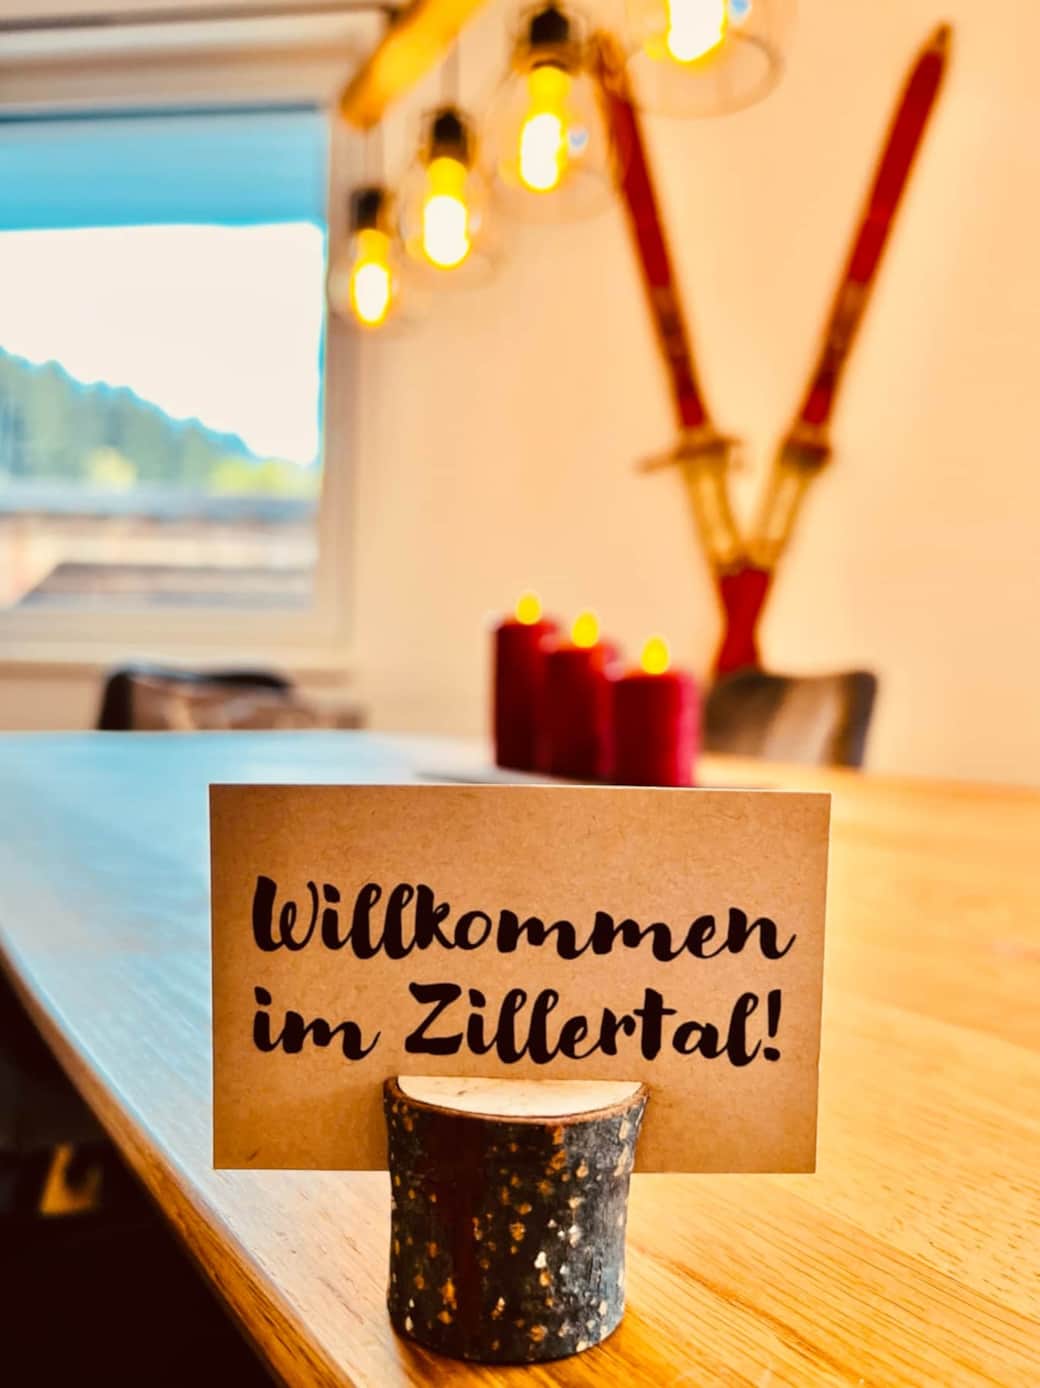 Willkommen
im Zillertal!